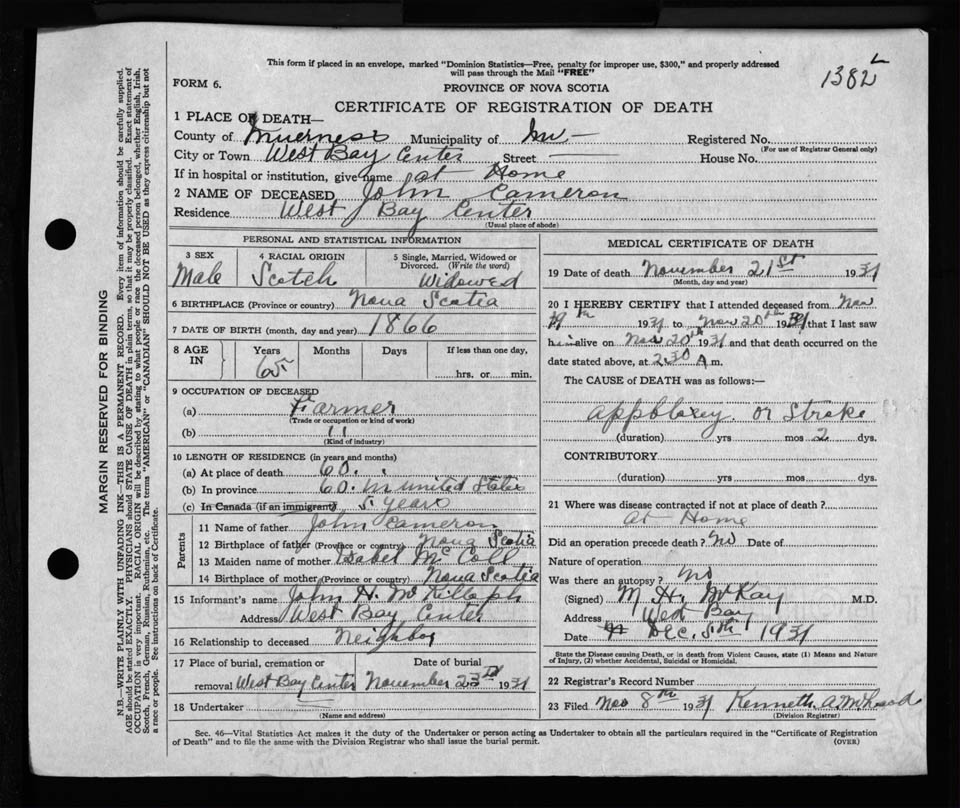 This form if placed in an envelope, marked "Dominion Statistics—Free, penalty for improper use, $300," and properly addressed
will pass through the Mail "FREE"
1382 L
FORM 6.
PROVINCE OF NOVA SCOTIA
CERTIFICATE OF REGISTRATION OF DEATH
1 PLACE OF DEATH—
County of Inverness Municipality of Inv — Registered No.
(For use of Registrar General only)
City or Town West Bay Center Street — House No.
If in hospital or institution, give name at Home
2 NAME OF DECEASED John Cameron
Residence West Bay Center
(Usual place of abode)
PERSONAL AND STATISTICAL INFORMATION
3 SEX 4 RACIAL ORIGIN 5 Single, Married, Widowed or Divorced. (Write the word)
Male Scotch Widowed
6 BIRTHPLACE (Province or country) Nova Scotia
7 DATE OF BIRTH (month, day and year) 1866
8 AGE IN Years Months Days If less than one day,
65 hrs. or min.
9 OCCUPATION OF DECEASED
(a) Farmer
(Trade or occupation or kind of work)
(b) 11
(Kind of industry)
10 LENGTH OF RESIDENCE (in years and months)
(a) At place of death 60.
(b) In province 60. in united States
(c) In Canada (if an immigrant) 5 years
Parents
11 Name of father John Cameron
12 Birthplace of father (Province or country) Nova Scotia
13 Maiden name of mother Isabel McColl
14 Birthplace of mother (Province or country) Nova Scotia
15 Informant's name John H.
Address West Bay Center
16 Relationship to deceased Neighbor
17 Place of burial, cremation or removal West Bay Center Date of burial November 23rd 1931
18 Undertaker
(Name and address)
MEDICAL CERTIFICATE OF DEATH
19 Date of death November 21st 1931
(Month, day and year)
20 I HEREBY CERTIFY that I attended deceased from Nov
19th 1931 to Nov 20th 1931 that I last saw
him alive on Nov 20th 1931 and that death occurred on the
date stated above, at 2.30 A m.
The CAUSE of DEATH was as follows:—
Appoblexey. or Stroke
(duration) yrs mos 2 dys.
CONTRIBUTORY
(duration) yrs mos dys.
21 Where was disease contracted if not at place of death?
at Home
Did an operation precede death? No Date of
Nature of operation
Was there an autopsy? No
(Signed) M. H. McKay M.D.
Address West Bay
Date Dec. 5th 1931
State the Disease causing Death, or in death from Violent Causes, state (1) Means and Nature
of Injury, (2) whether Accidental, Suicidal or Homicidal.
22 Registrar's Record Number
23 Filed 8th 1931 Kenneth A. McLeod
(Division Registrar)
Sec. 46—Vital Statistics Act makes it the duty of the Undertaker or person acting as Undertaker to obtain all the particulars required in the "Certificate of Registration
of Death" and to file the same with the Division Registrar who shall issue the burial permit. (OVER)
MARGIN RESERVED FOR BINDING
N.B.—WRITE PLAINLY WITH UNFADING INK—THIS IS A PERMANENT RECORD. Every item of information should be carefully supplied.
AGE should be stated EXACTLY. PHYSICIANS should STATE CAUSE OF DEATH in plain terms, so that it may be properly classified. Exact statement of
OCCUPATION is very important. RACIAL ORIGIN will be described by stating to what people or race the deceased person belonged, whether English, Irish,
Scotch, French, German, Russian, Ruthenian, etc. The terms "AMERICAN" or "CANADIAN" SHOULD NOT BE USED as they express citizenship but not
a race or people. See instructions on back of Certificate.